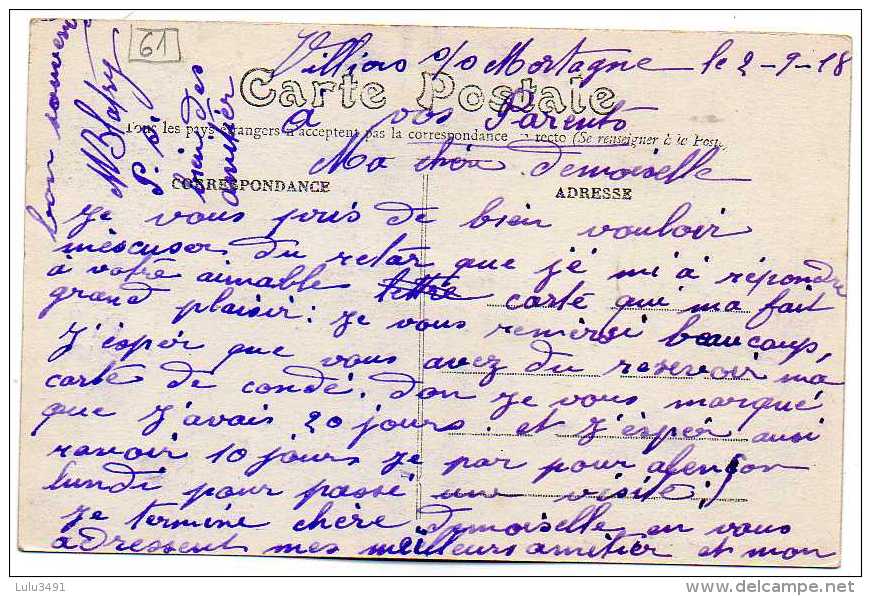 61
Villiers s/o Mortagne le 2-9-18
Carte Postale
Tous les pays étrangers n'acceptent pas la correspondance recto (Se renseigner à la Poste)
Ma chère demoiselle
CORRESPONDANCE
ADRESSE
Je vous pris de bien vouloir
méscuser du retar que jé mi à répondre
à votre aimable lettre carte qui ma fait
grand plaisir: Je vous remersi beaucoup,
J'espér que vous avez du reservoir ma
carte de condé. don je vous marqué
que J'avais 20 jours. et J'éspér ausi
ravoir 10 jours Je par pour alençon
lundi pour passé une visite!
Je termine chère Demoiselle en vous
adressent mes meilleurs amitier et mon
bon souvenir
a vos Parents
bien des
amitier
Lulu3491